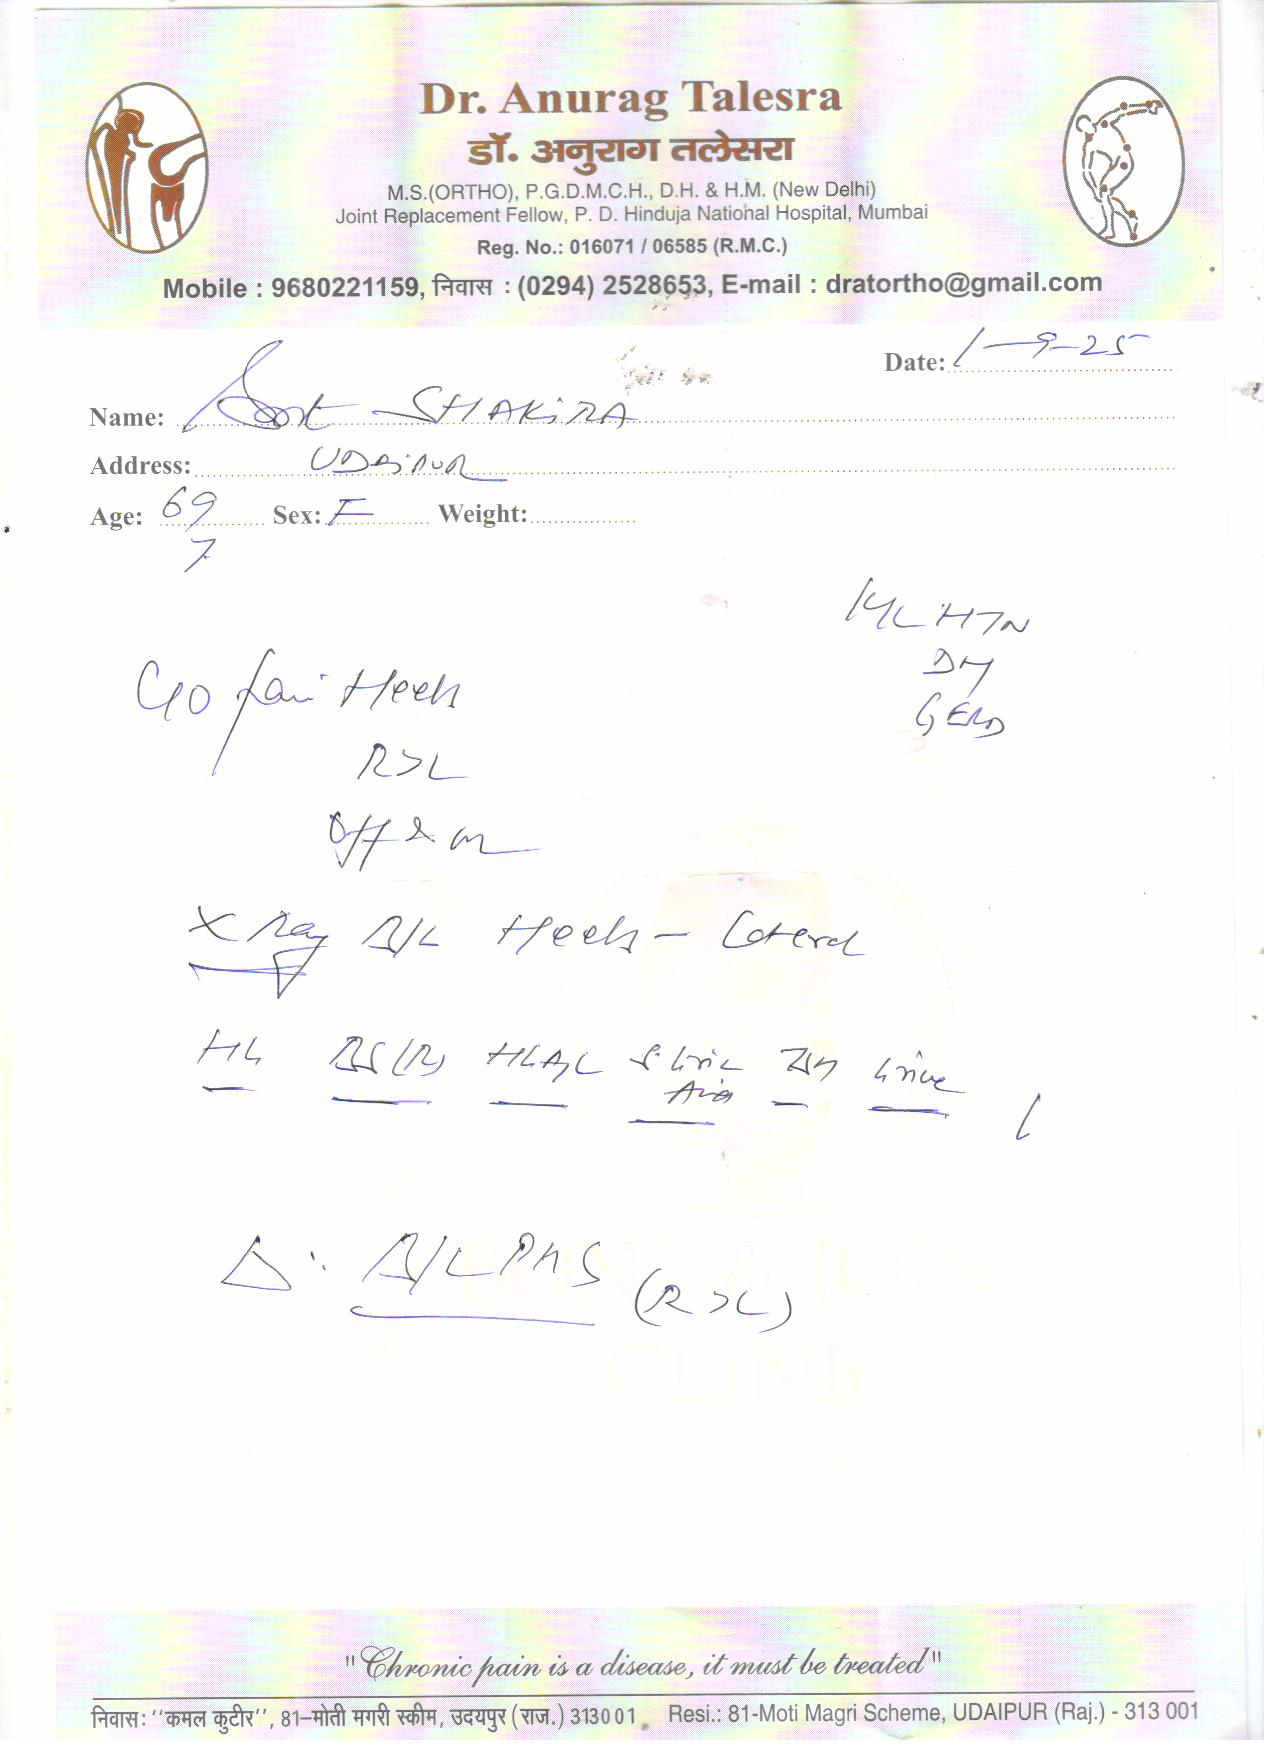 Dr. Anurag Talesra
डॉ. अनुराग तलेसरा
M.S.(ORTHO), P.G.D.M.C.H., D.H. & H.M. (New Delhi)
Joint Replacement Fellow, P. D. Hinduja National Hospital, Mumbai
Reg. No.: 016071 / 06585 (R.M.C.)
Mobile : 9680221159, निवास : (0294) 2528653, E-mail : dratortho@gmail.com
Date: 1-9-25
Name: Smt SHAKIRA
Address: UDAIPUR
Age: 69 Sex: F Weight:
K/C HTN
DM
GERD
C/O Pain Heels
R>L
Off & on
X Ray B/L Heels - Lateral
BS(R) HbA1C S Uric Acid Urine
Δ: B/L PHS (R>L)
BONE & JOI
CLINIC
"Chronic pain is a disease, it must be treated"
निवास: "कमल कुटीर", 81–मोती मगरी स्कीम, उदयपुर (राज.) 313001 Resi.: 81-Moti Magri Scheme, UDAIPUR (Raj.) - 313 001